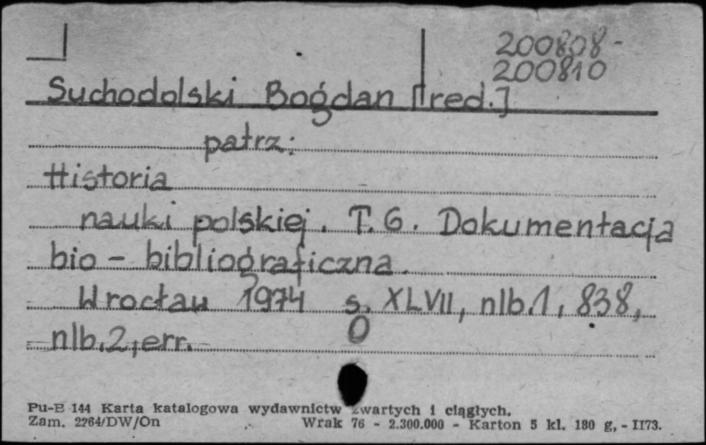 200808-
200810
Suchodolski Bogdan [red.]
patrz:
Historia
nauki polskiej. T. 6. Dokumentacja
bio - bibliograficzna.
Wrocław 1974 s. XLVII, nlb.1, 838,
nlb.2, err.
Pu-B 144 Karta katalogowa wydawnictw zwartych i ciągłych.
Zam. 2264/DW/On Wrak 76 - 2.300.000 - Karton 5 kl. 180 g, - II73.